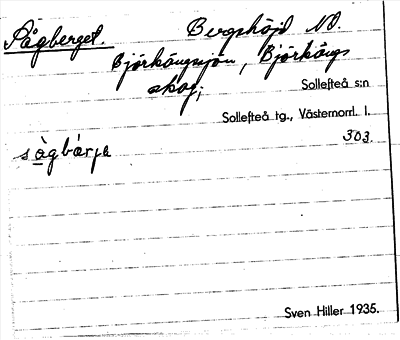 Sågberget. Bergshöjd NO.
Björkängssjön, Björkängs
skog;
Sollefteå s:n
Sollefteå tg., Västernorrl. l.
303.
sågbærjə
Sven Hiller 1935.